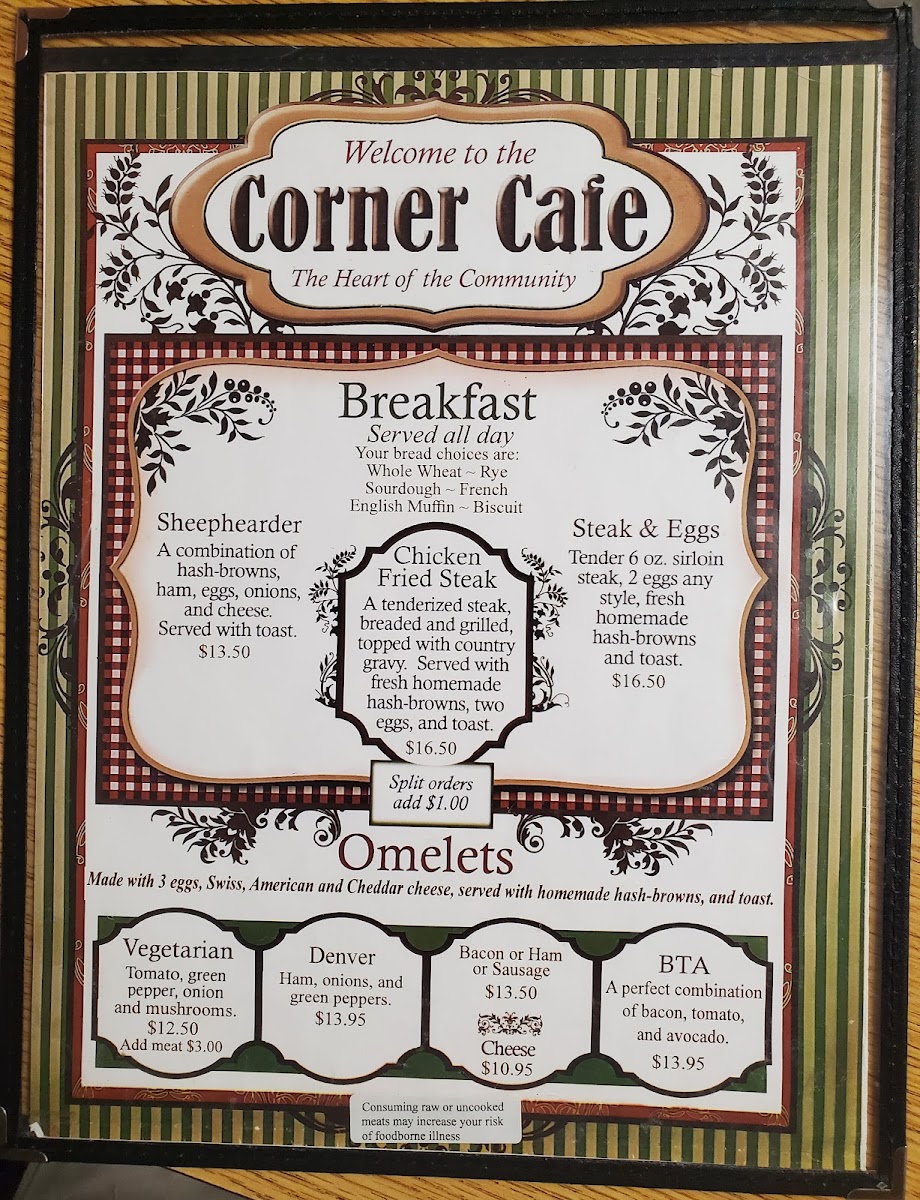 Welcome to the
Corner Cafe
The Heart of the Community
Breakfast
Served all day
Your bread choices are:
Whole Wheat ~ Rye
Sourdough ~ French
English Muffin ~ Biscuit
Sheephearder
A combination of
hash-browns,
ham, eggs, onions,
and cheese.
Served with toast.
$13.50
Chicken
Fried Steak
A tenderized steak,
breaded and grilled,
topped with country
gravy. Served with
fresh homemade
hash-browns, two
eggs, and toast.
$16.50
Steak & Eggs
Tender 6 oz. sirloin
steak, 2 eggs any
style, fresh
homemade
hash-browns
and toast.
$16.50
Split orders
add $1.00
Omelets
Made with 3 eggs, Swiss, American and Cheddar cheese, served with homemade hash-browns, and toast.
Vegetarian
Tomato, green
pepper, onion
and mushrooms.
$12.50
Add meat $3.00
Denver
Ham, onions, and
green peppers.
$13.95
Bacon or Ham
or Sausage
$13.50
Cheese
$10.95
BTA
A perfect combination
of bacon, tomato,
and avocado.
$13.95
Consuming raw or uncooked
meats may increase your risk
of foodborne illness